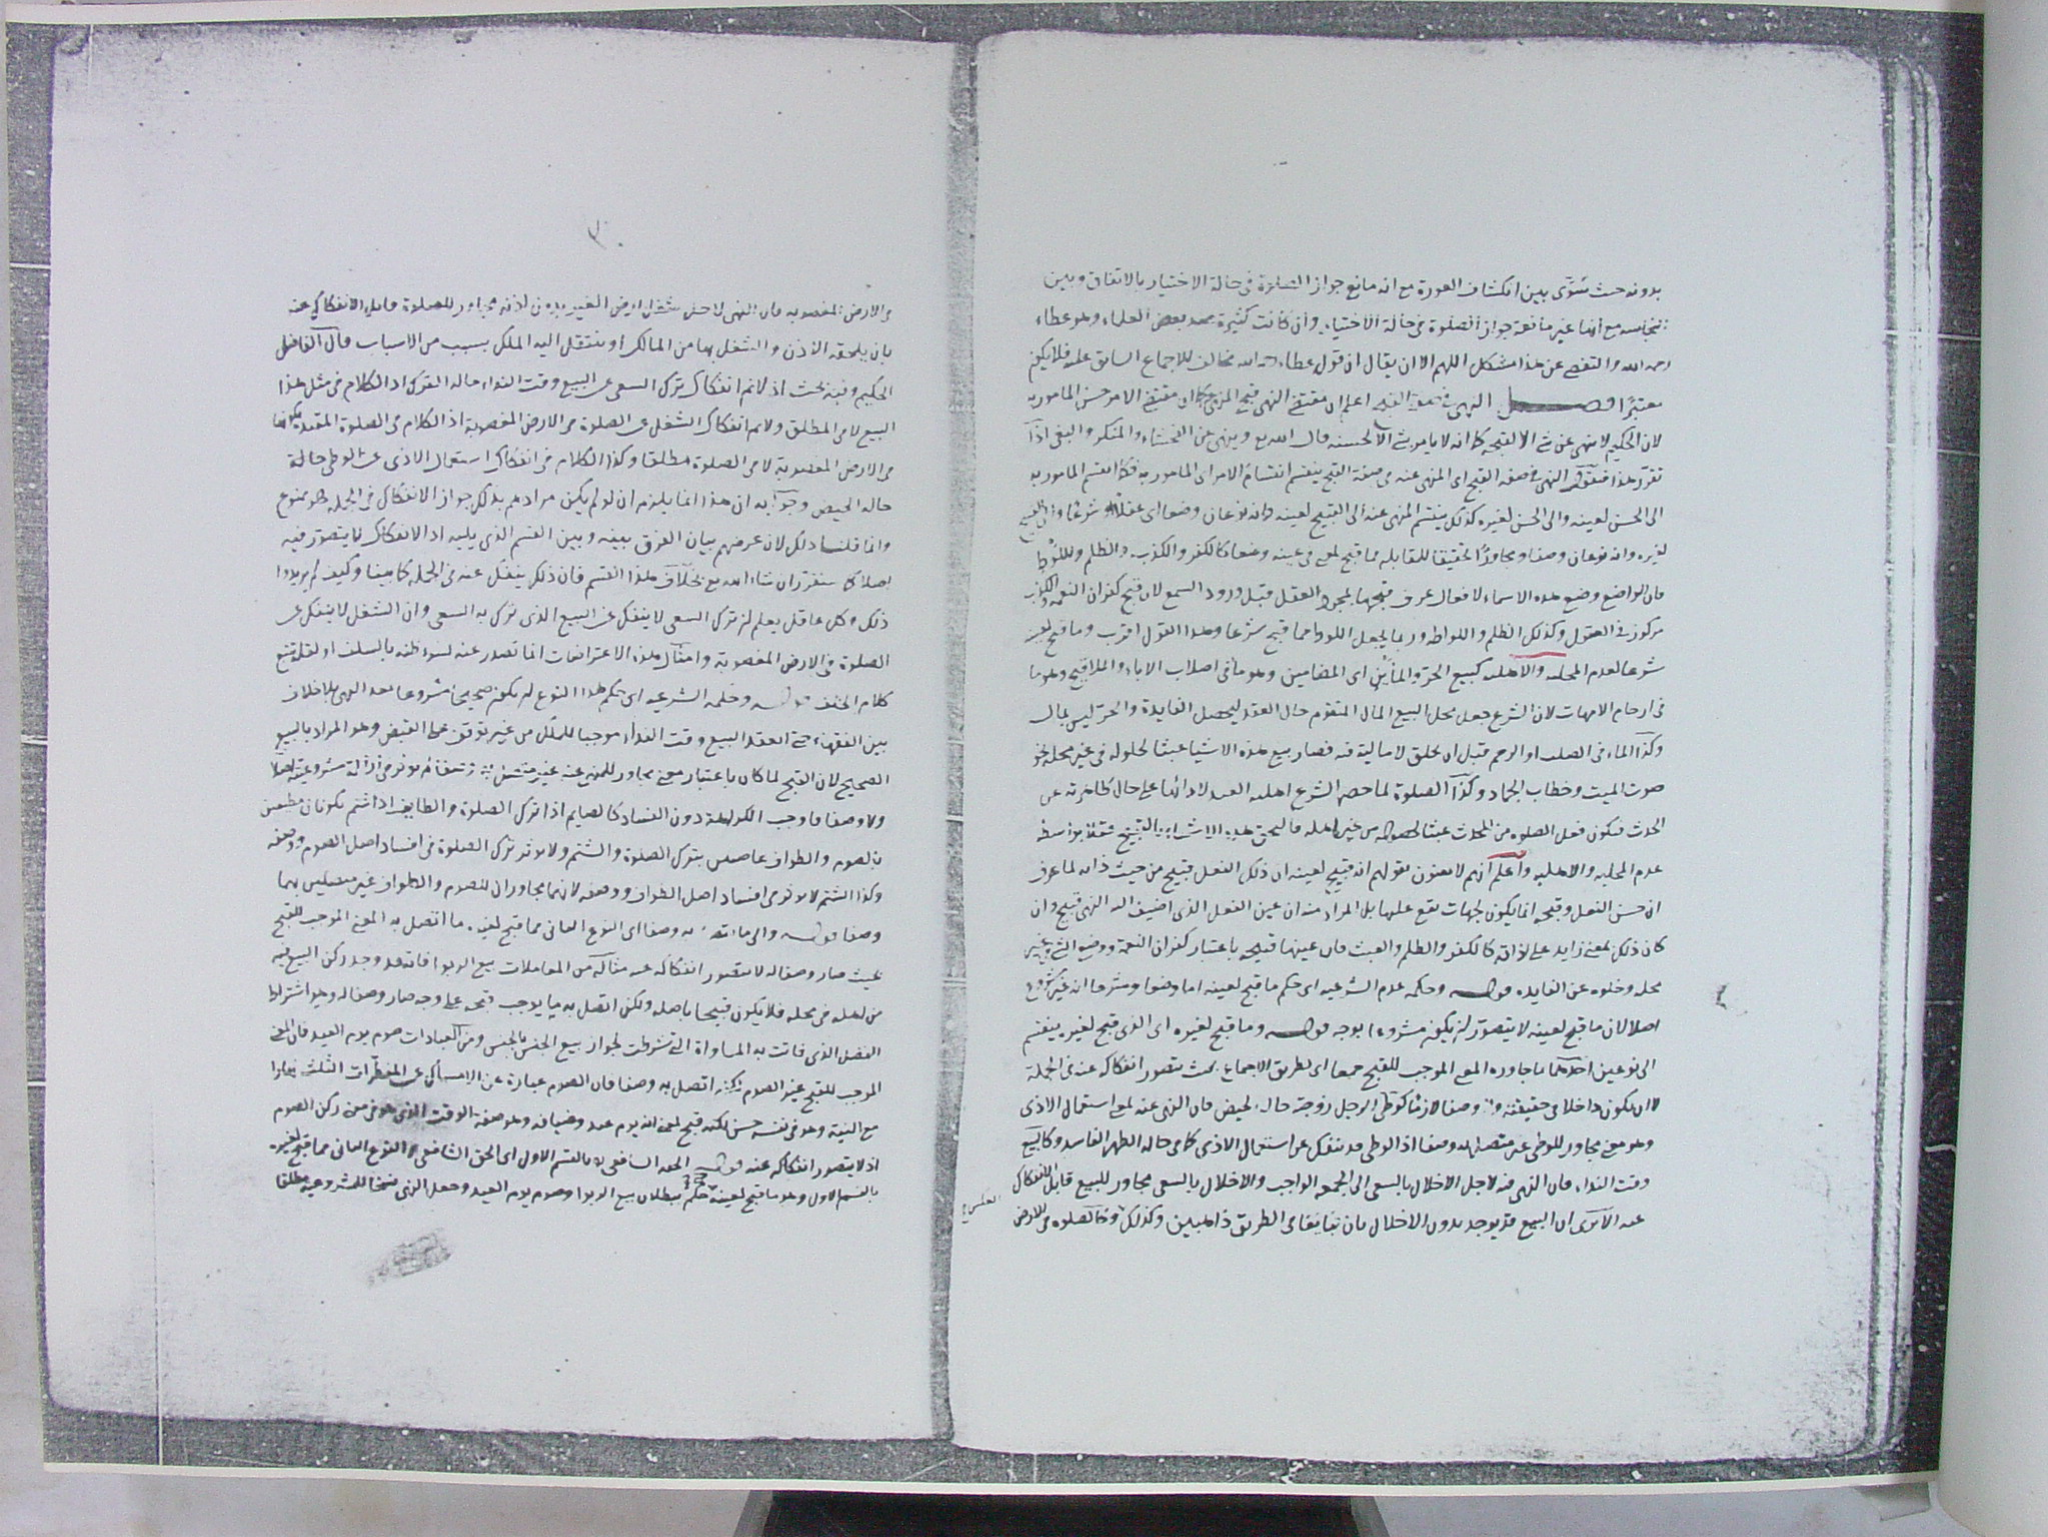 بدونه حيث سوّى بين انكشاف العورة مع انه مانع جواز الصلوة فى حالة الاختيار بالاتفاق وبين
النجاسه مع انها غير مانعة جواز الصلوة فى حالة الاختيار وان كانت كثيرة عند بعض العلماء وهو عطاء
رحمه الله والتفصى عن هذا مشكل اللهم الا ان يقال ان قول عطاء رحمه الله مخالف للاجماع السابق عليه فلا يكون
معتبرًا فصل النهى فى صفة القبح اعلم ان مقتضى النهى قبح المنهى عنه كما ان مقتضى الامر حسن المامور به
لان الحكيم لا ينهى عن شئ الا لقبحه كما انه لا يامر بشئ الا لحسنه قال الله تع وينهى عن الفحشاء والمنكر والبغى اذا
تقرر هذا فنقول النهى فى صفه القبح اى المنهى عنه فى صفة القبح ينقسم انقسام الامر اى المامور به فكما انقسم المامور به
الى الحسن لعينه والى الحسن لغيره كذلك ينقسم المنهى عنه الى القبيح لعينه وانه نوعان وضعا اى عقلا وشرعا والى القبيح
لغيره وانه نوعان وصفا ومجاورا تحقيقا للمقابله فما قبح لمعنى فى عينه وضعا كالكفر والكذب والظلم واللوط
فان الواضع وضع هذه الاسماء لافعال عرف قبحها بمجرد العقل قبل ورود السمع لان قبح كفران النعمه والكذب
مركوز فى العقول وكذلك الظلم واللواطه وربما يجعل اللواط مما قبح شرعا وهذا القول اقرب وما قبح لعينه
شرعا لعدم المحليه والاهليه كبيع الحرّ والمضامين وهو ما فى اصلاب الاباء والملاقيح وهو ما
فى ارحام الامهات لان الشرع جعل محل البيع المال المتقوم حال العقد ليحصل الفايدة والحرّ ليس بمال
وكذا الماء فى الصلب او الرحم قبل ان يخلق لا مالية فيه فصار بيع هذه الاشيا عبثا لحلوله فى غير محله نحو
صوت الميت وخطاب الجماد وكذا الصلوة لما حصر الشرع اهليه العبد لادائها على حال طهارته عن
الحدث فيكون فعل الصلوه من المحدث عبثا لحصوله من غير اهله فالتحق هذه الاشياء بالقبيح عقلا بواسطه
عدم المحليه والاهليه واعلم انهم لا يعنون بقولهم انه قبيح لعينه ان ذلك الفعل قبيح من حيث ذاته لما عرف
ان حسن الفعل وقبحه انما يكون لجهات يقع عليها بل المراد منه ان عين الفعل الذى اضيف اليه النهى قبيح وان
كان ذلك لمعنى زايد على ذاته كالكفر والظلم والعبث فان عينها قبيحه باعتبار كفران النعمة ووضع الشئ فى غير
محله وخلوه عن الفايده قوله وحكمه عدم الشرعيه اى حكم ما قبح لعينه اما وضعا وشرعا انه غير مشروع
اصلا لان ما قبح لعينه لا يتصوّر ان يكون مشروعا بوجه قوله وما قبح لغيره اى الذى قبح لغيره ينقسم
الى نوعين احدهما ما جاوره المعنى الموجب للقبح جمعا اى بطريق الاجماع بحيث يتصور انفكاكه عنه فى الجملة
لا ان يكون داخلا فى حقيقته ولا وصفا لازما كوطئ الرجل زوجته حالة الحيض فان النهى عنه لمعنى استعمال الاذى
وهو معنى مجاور للوطئ غير متصل به وصفا اذ الوطى قد ينفك عن استعمال الاذى كما فى حاله الطهر الفاسد وكالبيع
وقت النداء فان النهى عنه لاجل الاخلال بالسعى الى الجمعه الواجب والاخلال بالسعى مجاور للبيع قابل للانفكاك
عنه الا ترى ان البيع قد يوجد بدون الاخلال بان تبايعا فى الطريق ذاهبين وكذلك كالصلوه فى الارض
العكس
فى الارض المغصوبه فان النهى لاجل شغل ارض الغير بدون اذنه مجاور للصلوة قابل الانفكاك عنه
بان يلحقه الاذن والشغل بها من المالك او ينتقل اليه الملك بسبب من الاسباب قال الفاضل
الحكيم وفيه بحث اذ لا نم انفكاك ترك السعى عن البيع وقت النداء حاله الترك اذ الكلام فى مثل هذا
البيع لا فى المطلق ولا نم انفكاك الشغل عن الصلوة فى الارض المغصوبة اذ الكلام فى الصلوة المقيده بكونها
فى الارض المغصوبة لا فى الصلوة مطلقا وكذا الكلام فى انفكاك استعمال الاذى عن الوطى حالة
حاله الحيض وجوابه ان هذا انما يلزم ان لو لم يكن مرادهم بذلك جواز الانفكاك فى الجمله وهو ممنوع
وانما قلنا ذلك لان غرضهم بيان الفرق بينه وبين القسم الذى يليه اذ الانفكاك لا يتصور فيه
اصلا كما سنقرر ان شاء الله تع بخلاف هذا القسم فان ذلك ينفك عنه فى الجمله كما بينا وكيف لم يريدوا
ذلك وكل عاقل يعلم ان ترك السعى لا ينفك عن البيع الذى ترك به السعى وان الشغل لا ينفك عن
الصلوة فى الارض المغصوبة وامثال هذه الاعتراضات انما تصدر عنه لسوء ظنه بالسلف او لقلة تتبع
كلام الخلف قوله وحكمه الشرعيه اى حكم هذا النوع ان يكون صحيحا مشروعا بعد النهى بلا خلاف
بين الفقهاء حتى انعقد البيع وقت النداء موجبا للملك من غير توقف على القبض وهو المراد بالبيع
الصحيح لان القبح لما كان باعتبار معنى مجاور للمنهى عنه غير متصل به وصفا لم يوثر فى ازالة مشروعيته اصلا
ولا وصفا فاوجب الكراهة دون الفساد كالصايم اذا ترك الصلوة والطايف اذا شتم يكونان مطيعين
بالصوم والطواف عاصيين بترك الصلوة والشتم ولا يوثر ترك الصلوة فى افساد اصل الصوم ووصفه
وكذا الشتم لا يوثر فى افساد اصل الطواف ووصفه لانهما مجاوران للصوم والطواف غير متصلين بهما
وصفا قوله والى ما اتصل به وصفا اى النوع الثانى مما قبح لغيره ما اتصل به المعنى الموجب للقبح
بحيث صار وصفا له لا يتصور انفكاكه عنه مثاله من المعاملات بيع الربوا فانه قد وجد ركن البيع فيه
من اهله فى محله فلا يكون قبيحا باصله ولكن اتصل به ما يوجب قبحه على وجه صار وصفا له وهو اشتراط
الفضل الذى فاتت به المساواة التى شرطت لجواز بيع الجنس بالجنس ومن العبادات صوم يوم العيد فان المعنى
الموجب للقبح غير الصوم لكنه اتصل به وصفا فان الصوم عبارة عن الامساك عن المفطرات الثلث نهارا
مع النية وهو فى نفسه حسن لكنه قبح لمعنى انه يوم عيد وضيافه وهو صفة الوقت الذى هو من ركن الصوم
اذ لا يتصور انفكاكه عنه قوله الحقه الشافعى بالقسم الاول اى الحق الشافعى النوع الثانى مما قبح لغيره
بالقسم الاول وهو ما قبح لعينه حتى حكم ببطلان بيع الربوا وصوم يوم العيد وجعل النهى نسخا للمشروعيه مطلقا